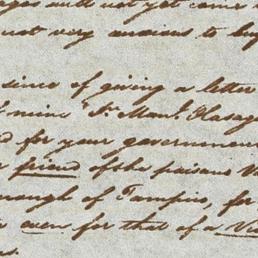 will not yet come
not very anxious to
since of giving a letter
of mine
for your government
friend of the
enough of Tampico, for
even for that of a